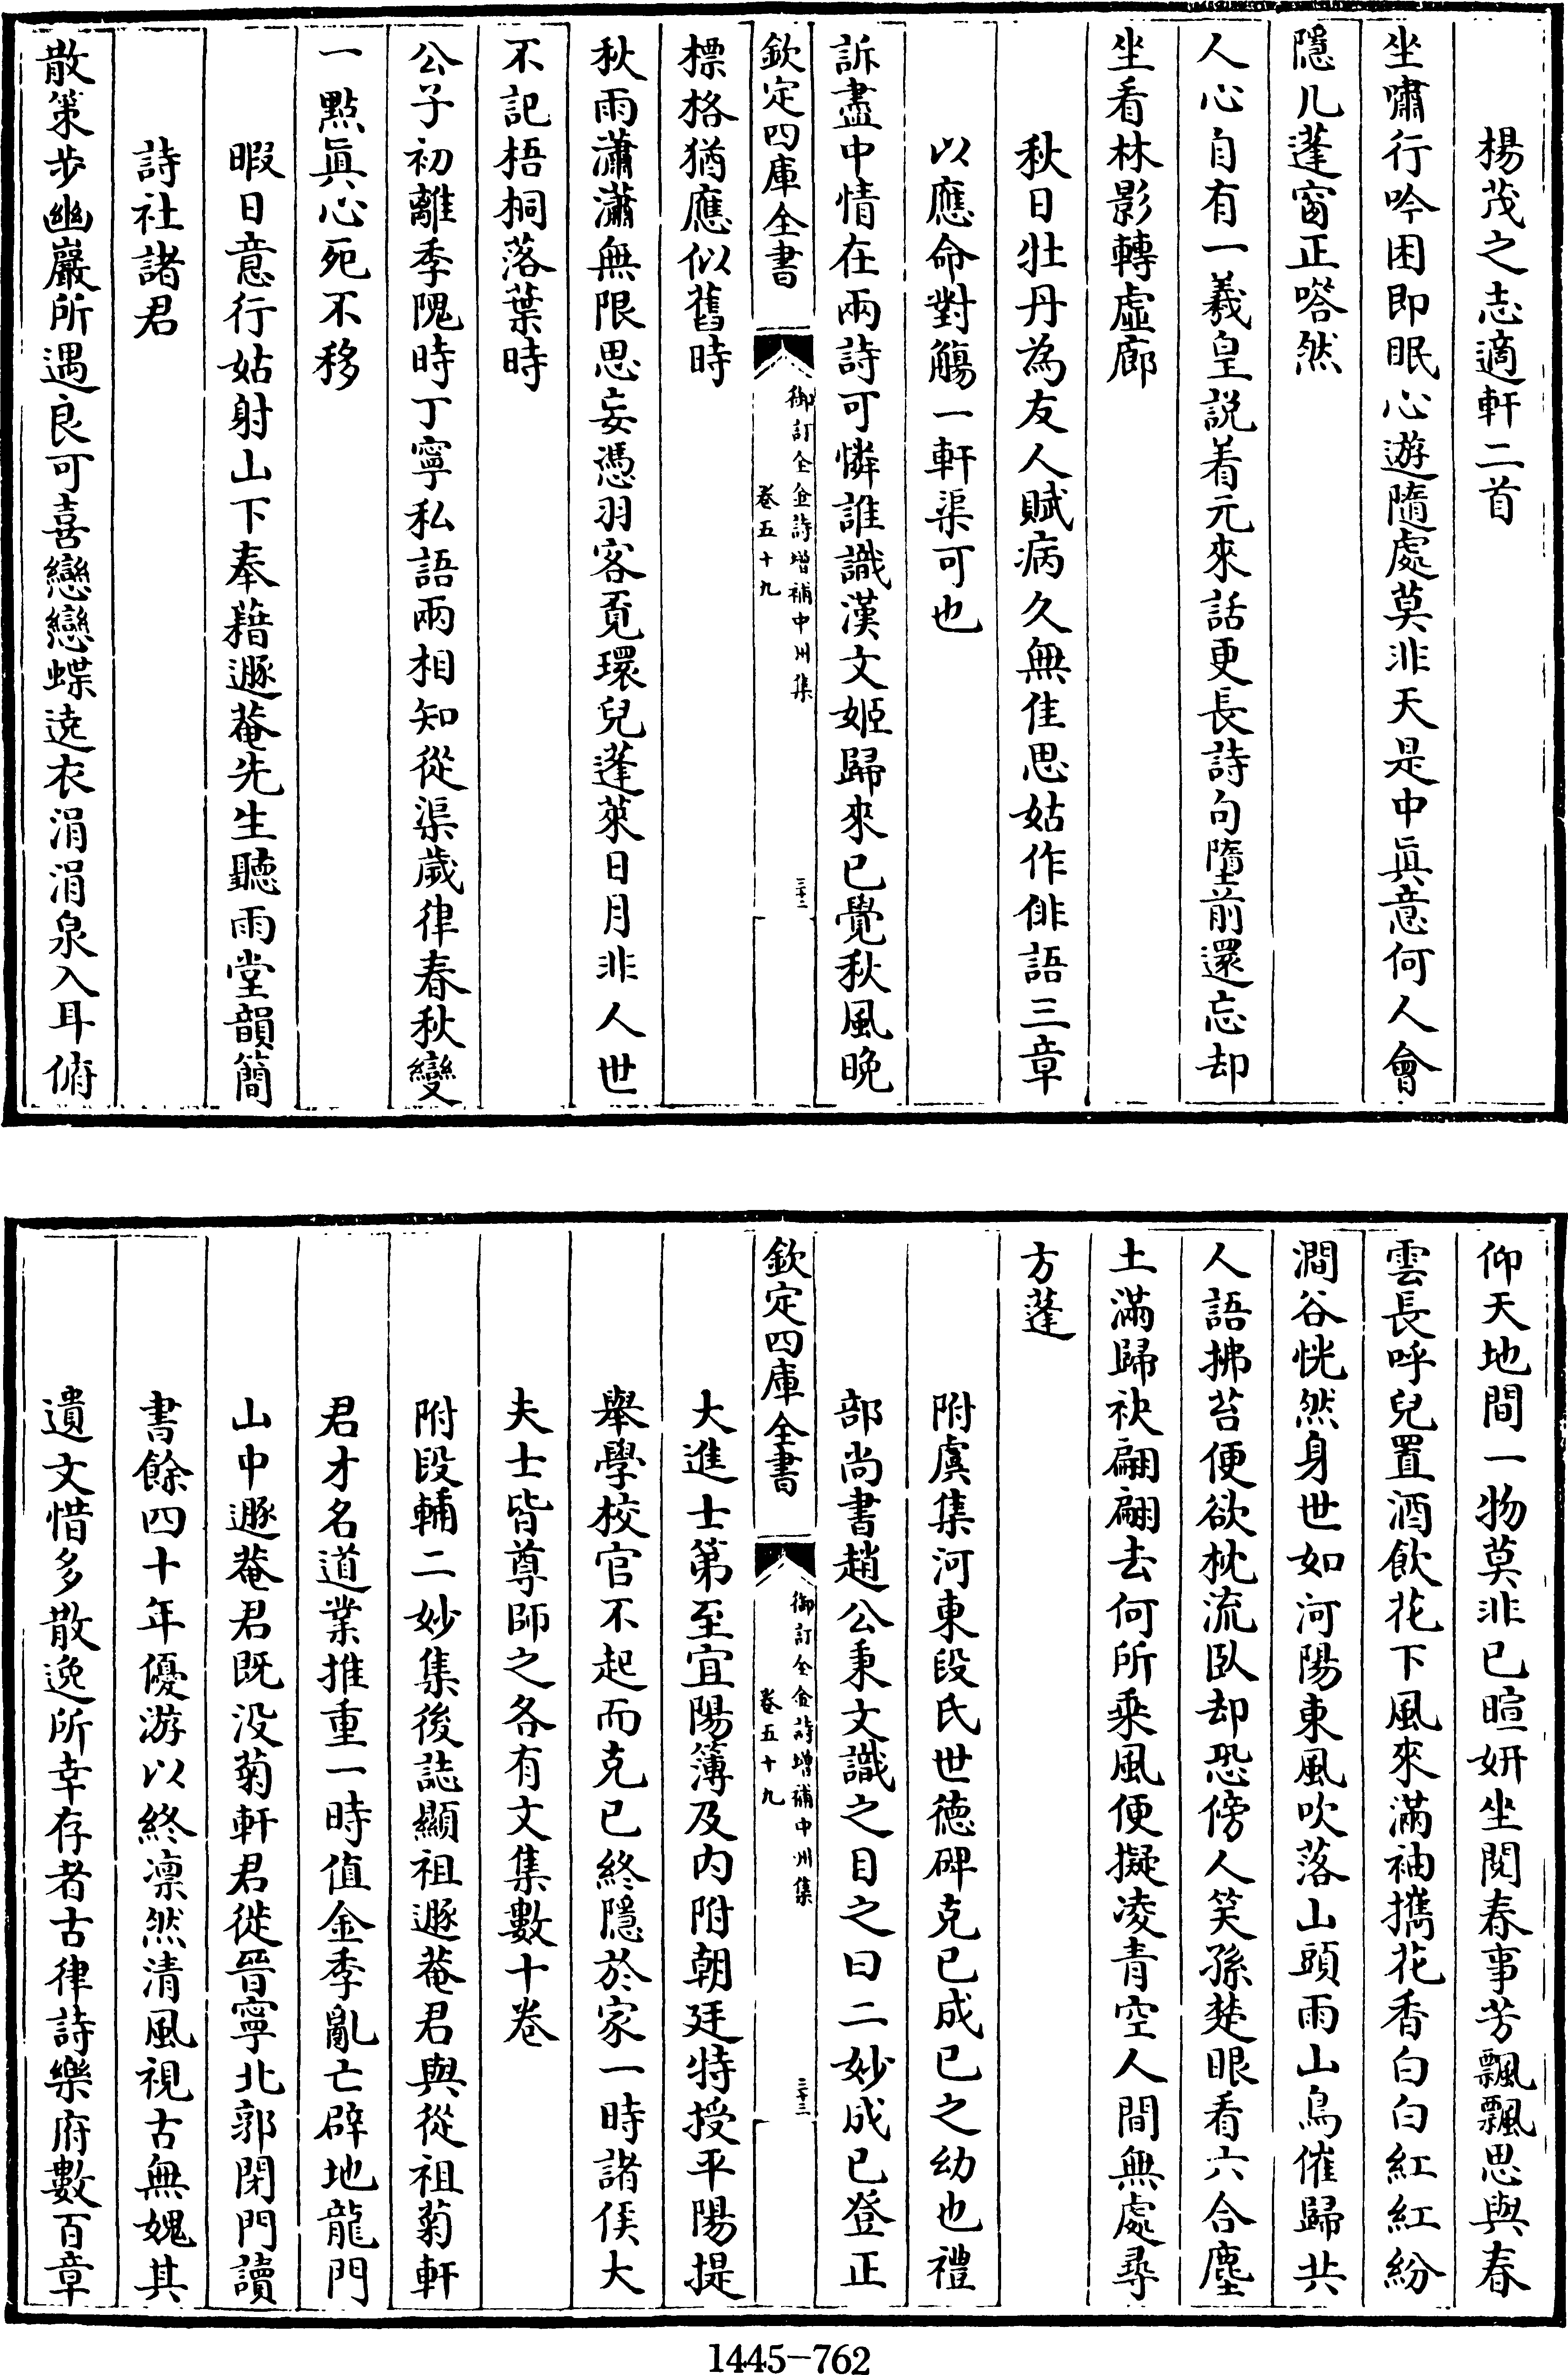 楊茂之志適軒二首
坐嘯行吟困即眠心遊隨處莫非天是中真意何人會
隱几蓬窗正嗒然
人心自有一羲皇説着元來話更長詩句墮前還忘却
坐看林影轉虛廊
秋日牡丹為友人賦病久無佳思姑作俳語三章
以應命對觴一軒渠可也
訴盡中情在兩詩可憐誰識漢文姬歸來已覺秋風晩
欽定四庫全書
御訂全金詩增補中州集
卷五十九
三十二
標格猶應似舊時
秋雨瀟瀟無限思妄憑羽客覓環兒蓬萊日月非人世
不記梧桐落葉時
公子初離季隗時丁寧私語兩相知從渠歲律春秋變
一點真心死不移
暇日意行姑射山下奉藉遯菴先生聽雨堂韻簡
詩社諸君
散策步幽巖所遇良可喜戀戀蝶遶衣涓涓泉入耳俯
仰天地間一物莫非已暄妍坐閲春事芳飄飄思與春
雲長呼兒置酒飲花下風來滿袖攜花香白白紅紅紛
澗谷恍然身世如河陽東風吹落山頭雨山鳥催歸共
人語拂苔便欲枕流臥却恐傍人笑孫楚眼看六合塵
土滿歸袂翩翩去何所乘風便擬凌青空人間無處尋
方蓬
附虞集河東段氏世德碑克已成已之幼也禮
部尚書趙公秉文識之目之曰二妙成已登正
欽定四庫全書
御訂全金詩增補中州集
卷五十九
三十三
大進士第至宜陽簿及内附朝廷特授平陽提
舉學校官不起而克已終隱於家一時諸侯大
夫士皆尊師之各有文集數十卷
附段輔二妙集後誌顯祖遯菴君與從祖菊軒
君才名道業推重一時值金季亂亡辟地龍門
山中遯菴君既没菊軒君徙晉寧北郭閉門讀
書餘四十年優游以終凛然清風視古無媿其
遺文惜多散逸所幸存者古律詩樂府數百章
1445-762